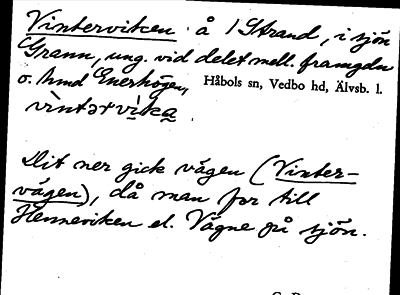 Vinterviken å 1 Strand, i sjön
Grann, ung. vid delet mell. framgdn
o. hmd Enerhögen, Håbols sn, Vedbo hd, Älvsb. l.
vìntərvi̱ka̱.
Dit ner gick vägen (Vinter-
vägen), då man for till
Henneviken el. Vågne på sjön.